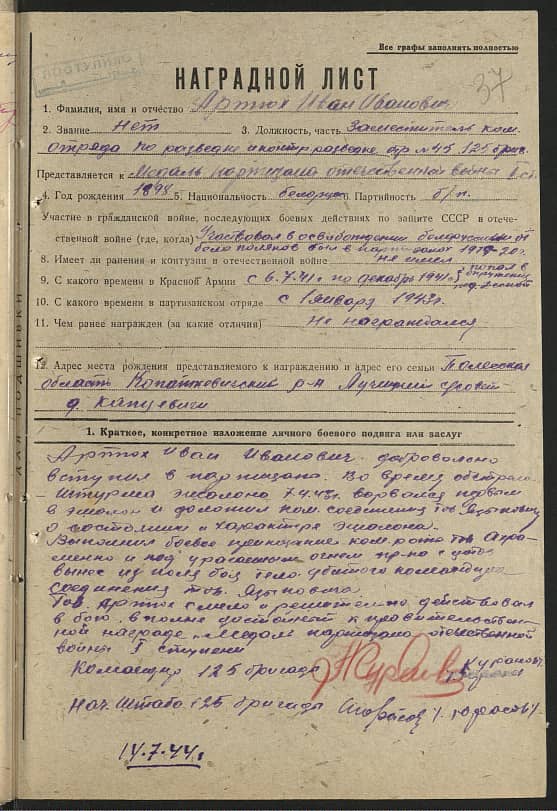 ПОСТУПИЛО
Все графы заполнять полностью
37
НАГРАДНОЙ ЛИСТ
1. Фамилия, имя и отчество Артюх Иван Иванович
2. Звание нет 3. Должность, часть Заместитель ком.
отряда по разведке и контрразведке отр № 45 125 бриг.
Представляется к Медаль партизана отечественной войны I ст.
4. Год рождения 1898 5. Национальность белорус Партийность б/п.
Участие в гражданской войне, последующих боевых действиях по защите СССР и отече-
ственной войне (где, когда) Участвовал в освобождении от
бело поляков 20 г.
8. Имеет ли ранения и контузия в отечественной войне не имел
9. С какого времени в Красной Армии с 6.7.41 г. по декабрь 1941 г. попал в окружение
10. С какого времени в партизанском отряде с 1 января 1943 г.
11. Чем ранее награжден (за какие отличия) Не награждался
12. Адрес места рождения представляемого к награждению и адрес его семьи Полесская
область Копаткевичский р-н Лучицкий
д. Капцевичи
ДЛЯ ПОДШИВКИ
1. Краткое, конкретное изложение личного боевого подвига или заслуг
Артюх Иван Иванович добровольно
вступил в партизаны. Во время обстрела
Штурма эшелона 7.4.43 г. ворвался первым
в эшелон и доложил ком. соединения тов. Языковичу
о состоянии и характере эшелона.
Выполнил боевое приказание ком. роты тов.
и под ураганным огнем пр-ка
вынес из поля боя тело убитого командира
соединения тов. Языковича.
Тов. Артюх смело и решительно действовал
в бою, вполне достоин к правительствен-
ной награде „Медаль партизана отечественной
войны I ступени
Командир 125 бригады
Нач. Штаба 125 бригады
14.7.44 г.